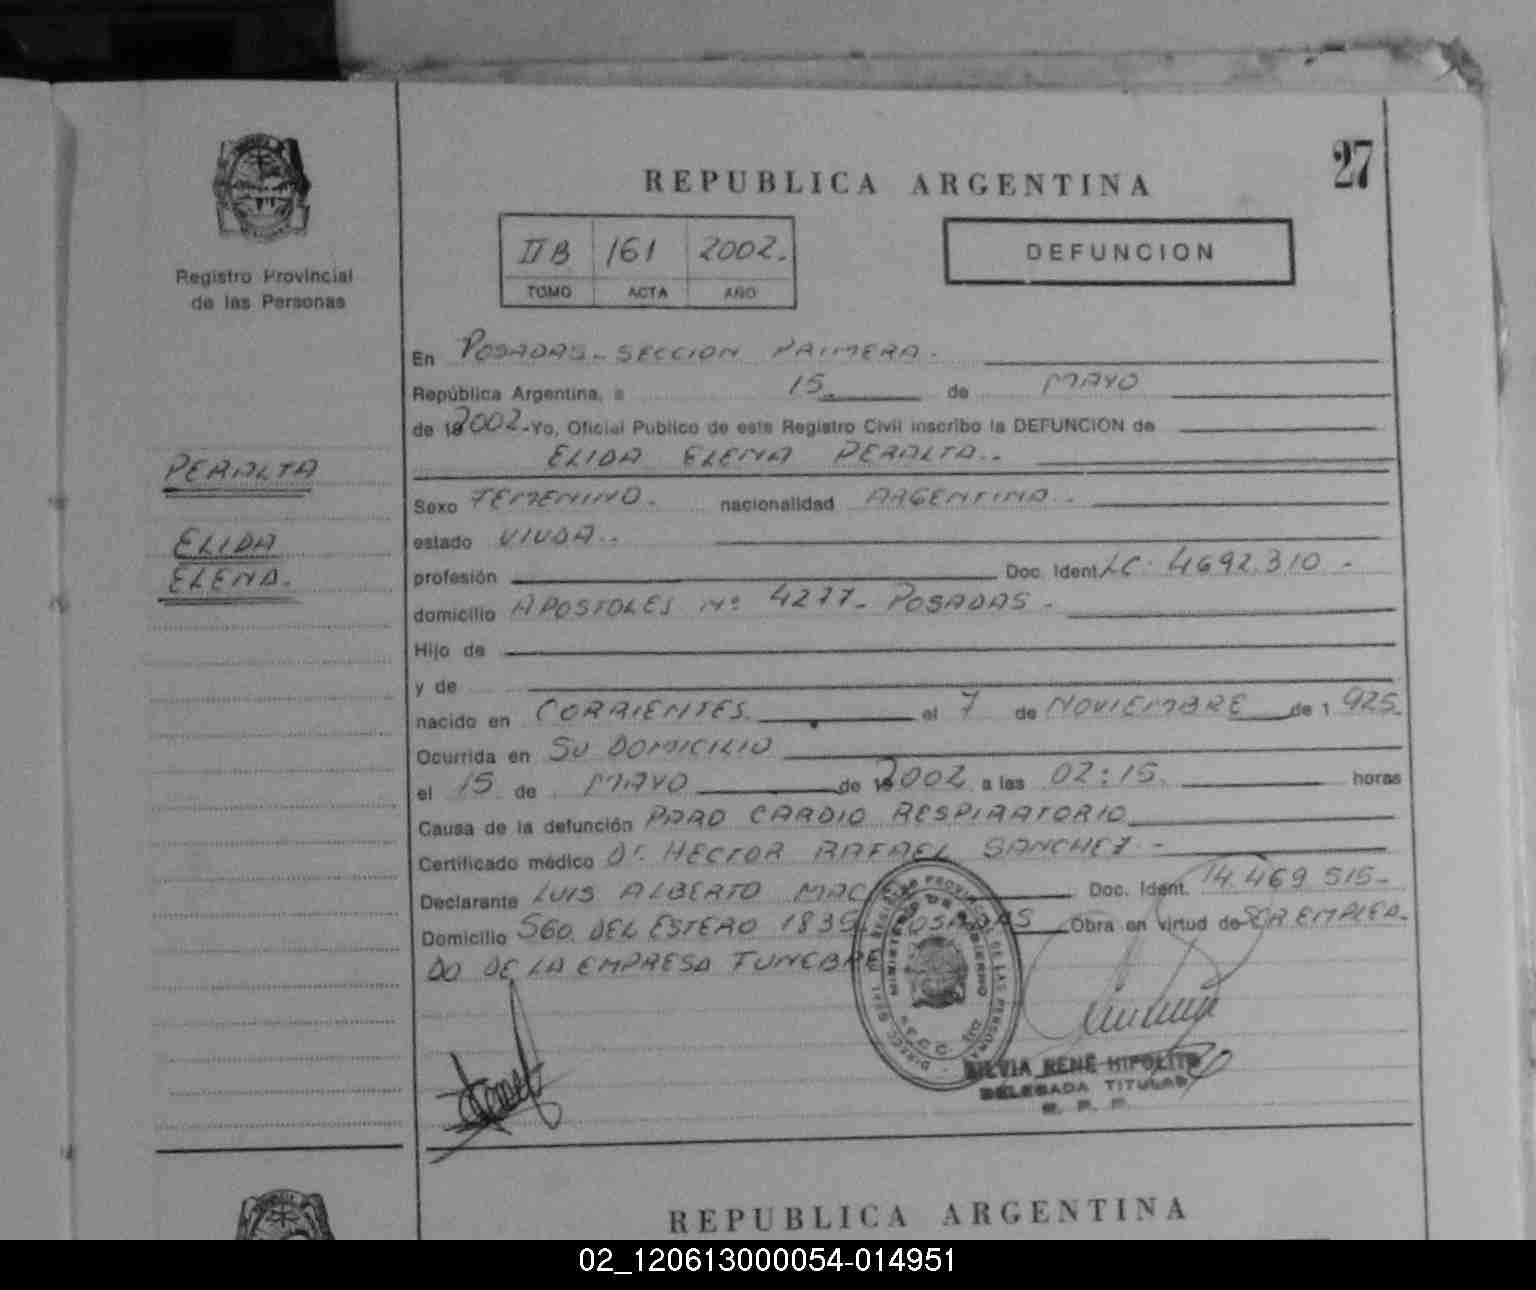 27
REPUBLICA ARGENTINA
Registro Provincial
de las Personas
IIB 161 2002.
TOMO ACTA AÑO
DEFUNCION
PERALTA
ELIDA
ELENA.
En POSADAS - SECCION PRIMERA.
República Argentina, a 15 de MAYO
de 19 2002 - Yo, Oficial Publico de este Registro Civil inscribo la DEFUNCION de
ELIDA ELENA PERALTA..
Sexo FEMENINO. nacionalidad ARGENTINA..
estado VIUDA..
profesión Doc. Ident. LC. 4692.310 -
domicilio APOSTOLES Nº 4277 - POSADAS -
Hijo de
y de
nacido en CORRIENTES el 7 de NOVIEMBRE de 1 925.
Ocurrida en SU DOMICILIO
el 15 de MAYO de 19 2002 a las 02:15 horas
Causa de la defunción PARO CARDIO RESPIRATORIO
Certificado médico Dr. HECTOR RAFAEL SANCHEZ -
Declarante LUIS ALBERTO Doc. Ident. 14.469.515-
Domicilio SGO. DEL ESTERO 1839 POSADAS Obra en virtud de SER EMPLEA-
DO DE LA EMPRESA FUNEBRE
MINISTERIO DE GOBIERNO
SILVIA RENÉ HIPOLITO
DELEGADA TITULAR
R. P. P.
REPUBLICA ARGENTINA
02_120613000054-014951